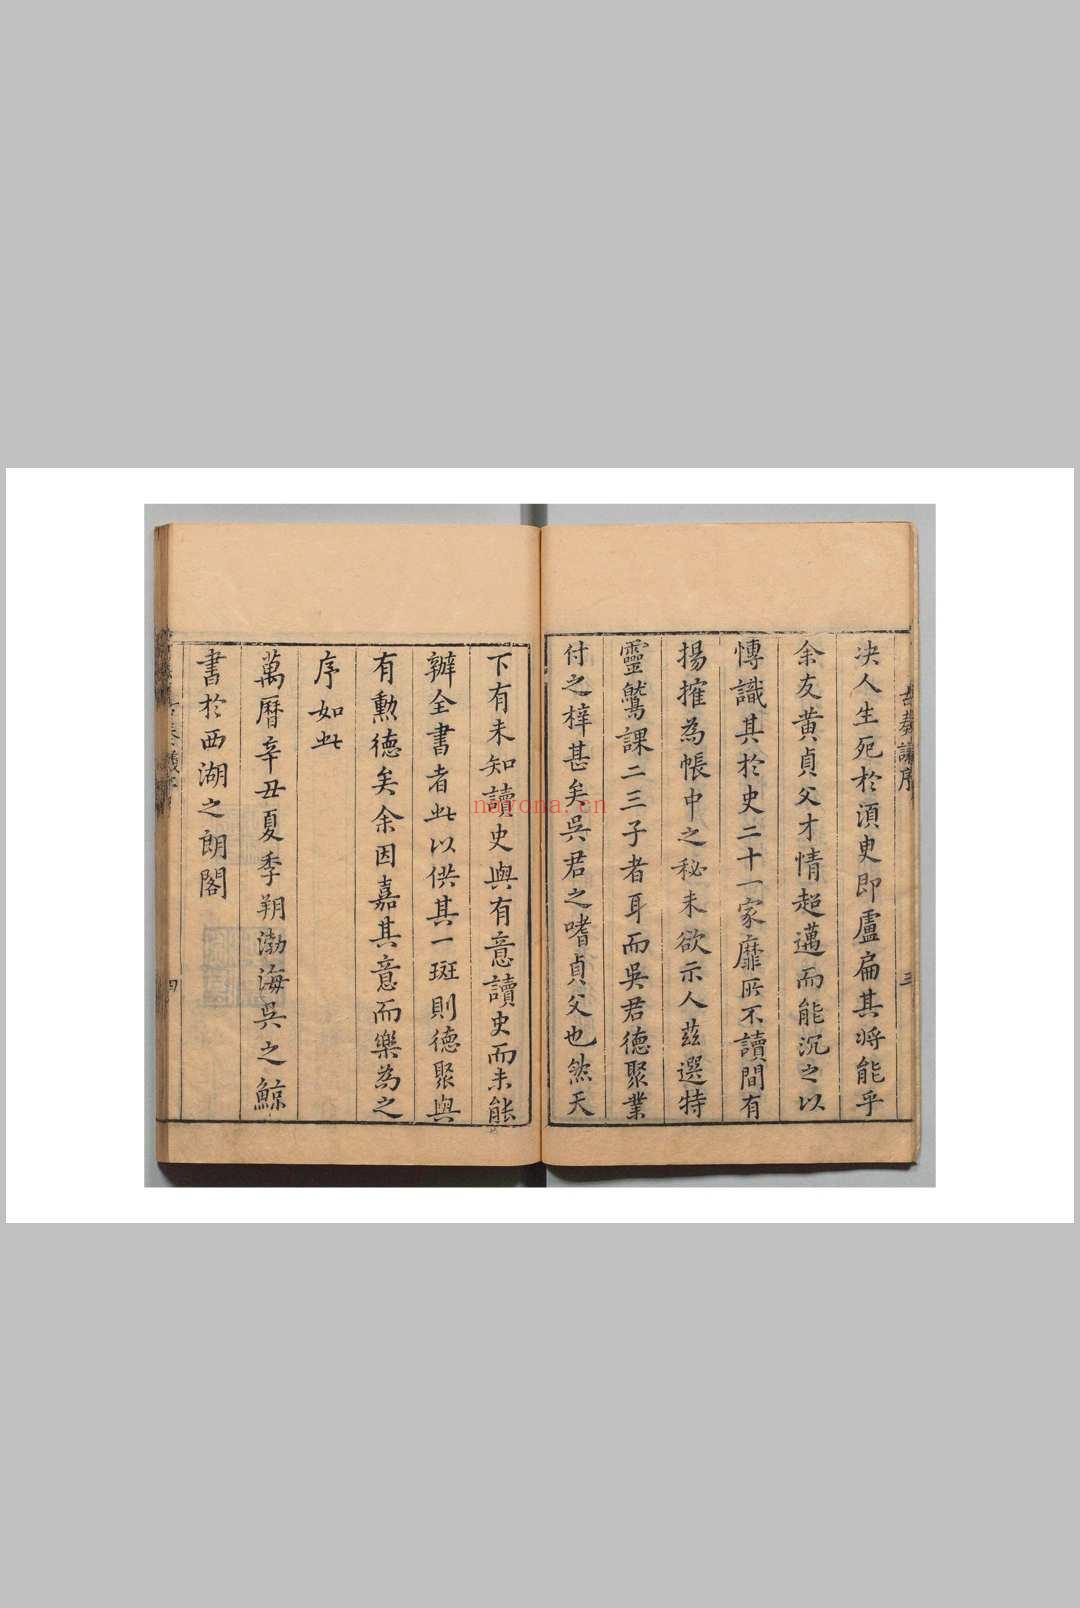 古奏議序
三
决人生死於須臾即盧扁其將能乎
余友黄貞父才情超邁而能沉之以
慱識其於史二十一家靡所不讀間有
揚搉為帳中之秘未欲示人茲選特
靈鷲課二三子者耳而吳君德聚業
付之梓甚矣吳君之嗜貞父也然天
下有未知讀史與有意讀史而未能
辦全書者此以供其一斑則德聚與
有勳德矣余因嘉其意而樂為之
序如此
萬曆辛丑夏季朔渤海吳之鯨
書於西湖之朗閣
四
nayona.cn